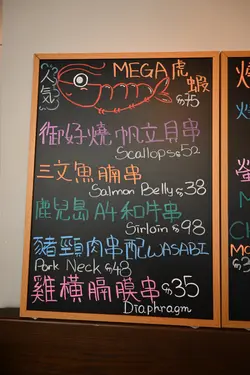 人氣
MEGA虎蝦
$75
御好燒帆立貝串
Scallops $52
三文魚腩串
Salmon Belly $38
鹿兒島A4和牛串
Sirloin $98
豬頸肉串配WASABI
Pork Neck $48
雞橫膈膜串 $35
Diaphragm